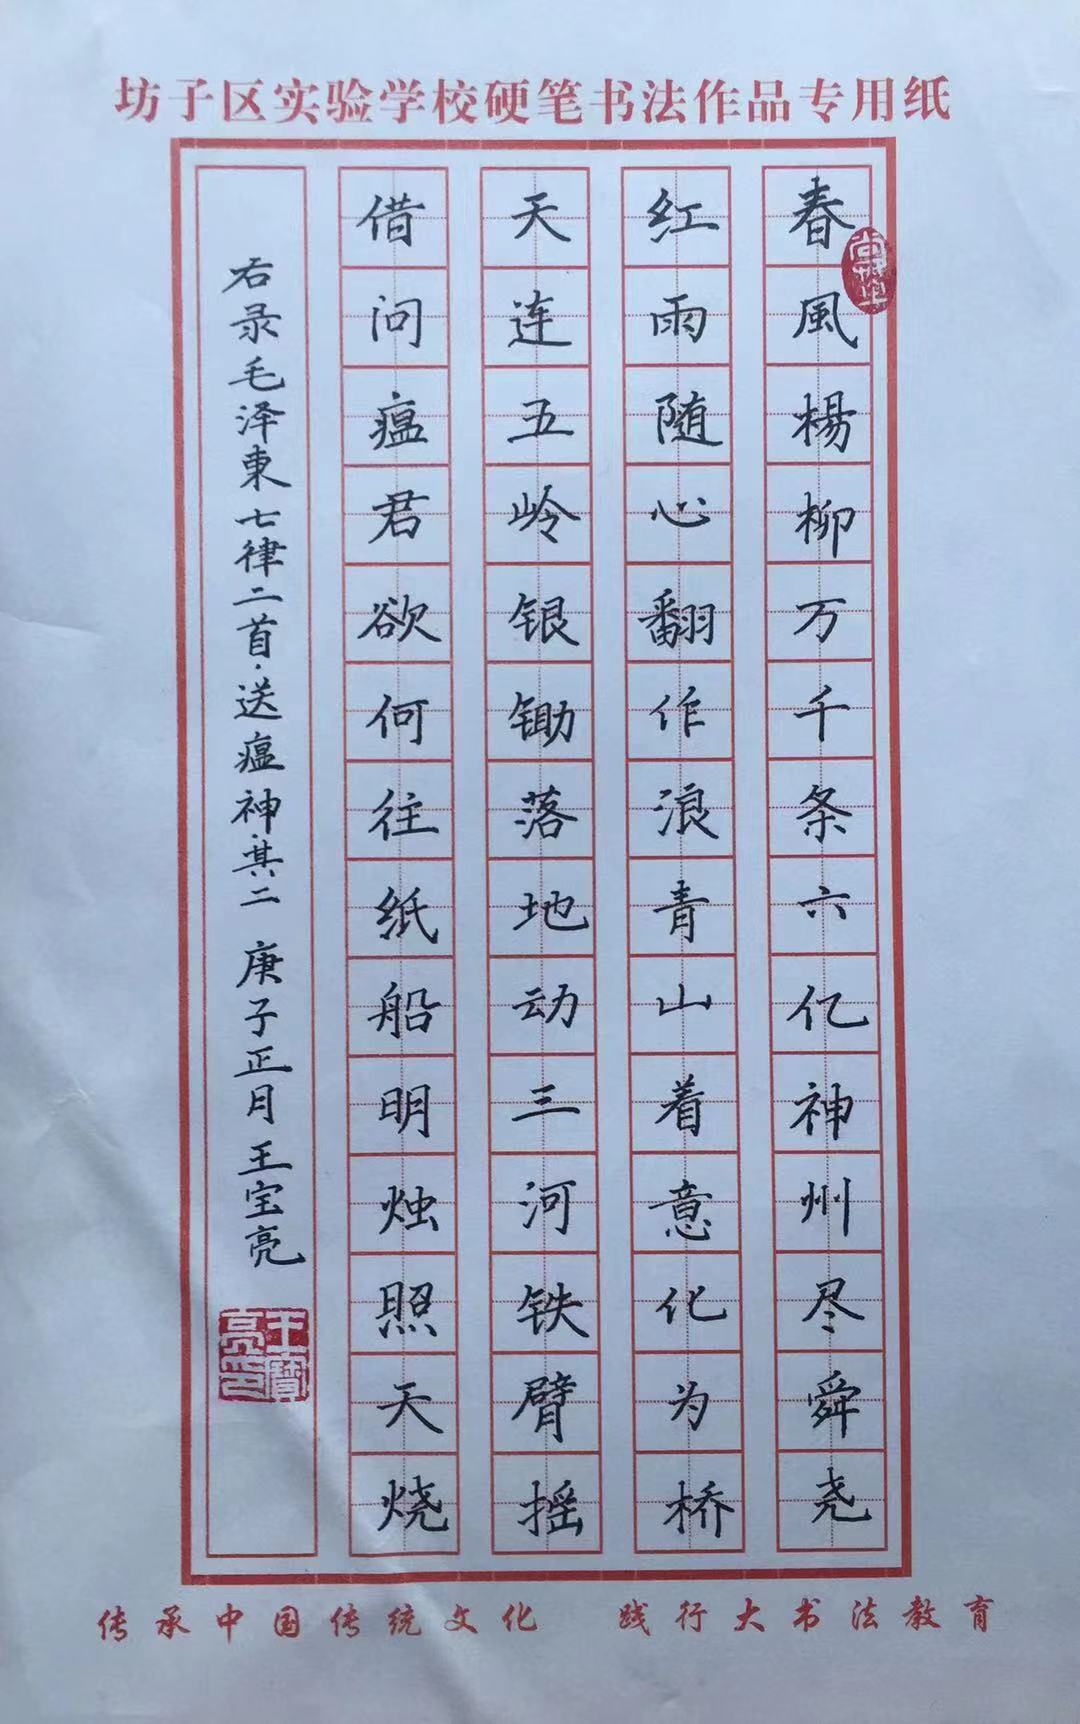 坊子区实验学校硬笔书法作品专用纸
春風楊柳万千条六亿神州尽舜尧
红雨随心翻作浪青山着意化为桥
天连五岭银锄落地动三河铁臂摇
借问瘟君欲何往纸船明烛照天烧
右录毛泽東七律二首·送瘟神·其二 庚子正月王宝亮
王寶亮印
传承中国传统文化 践行大书法教育